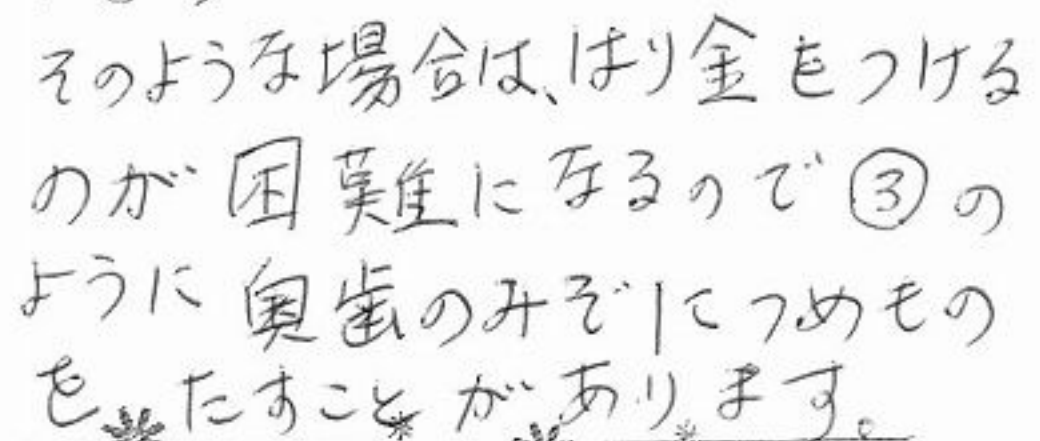 そのような場合は、はり金をつける
のが困難になるので③の
ように奥歯のみぞにつめもの
を、たすことがあります。